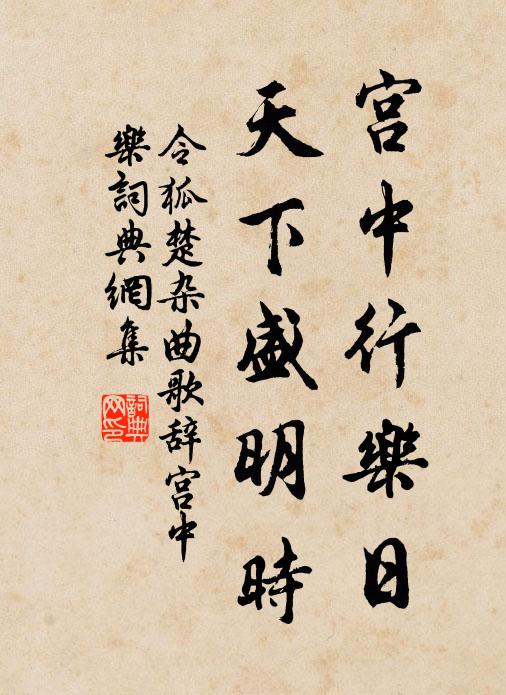 宫中行樂日
天下盛明時
令狐楚杂曲歌辞宫中
樂詞典網集
詞典
网印